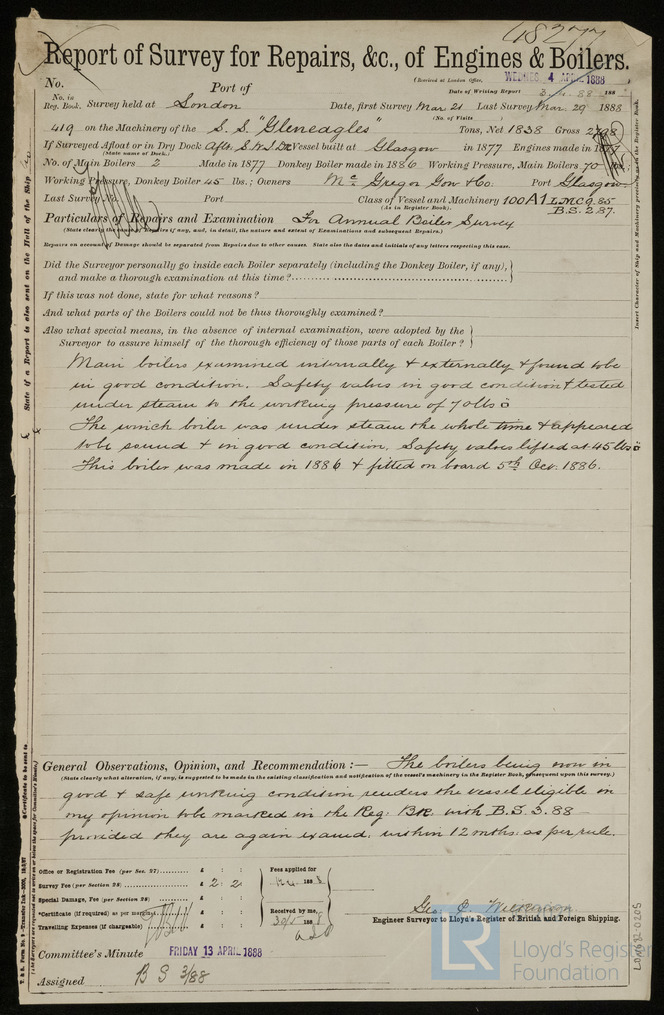 48277
Report of Survey for Repairs, &c., of Engines & Boilers.
(Received at London Office, WEDNES. 4 APRIL 1888
No. Port of
Date of Writing Report 3.4.88 188
No. in Reg. Book. Survey held at London Date, first Survey Mar 21 Last Survey Mar. 29 1888
(No. of Visits
419 on the Machinery of the S. S. "Gleneagles" Tons, Net 1838 Gross 2798
If Surveyed Afloat or in Dry Dock Aflt. S. W. I. Dk Vessel built at Glasgow in 1877 Engines made in 1877
(State name of Dock.)
No. of Main Boilers 2 Made in 1877 Donkey Boiler made in 1886 Working Pressure, Main Boilers 70 lbs.;
Working Pressure, Donkey Boiler 45 lbs.; Owners McGregor Gow & Co. Port Glasgow
Last Survey No. Port Class of Vessel and Machinery 100A1 LMC 9.85
(As in Register Book). B.S. 2.87.
Particulars of Repairs and Examination For Annual Boiler Survey
(State clearly the causes of Repairs if any, and, in detail, the nature and extent of Examinations and subsequent Repairs.)
Repairs on account of Damage should be separated from Repairs due to other causes. State also the dates and initials of any letters respecting this case.
Did the Surveyor personally go inside each Boiler separately (including the Donkey Boiler, if any),
and make a thorough examination at this time?
If this was not done, state for what reasons?
And what parts of the Boilers could not be thus thoroughly examined?
Also what special means, in the absence of internal examination, were adopted by the
Surveyor to assure himself of the thorough efficiency of those parts of each Boiler?
Main boilers examined internally & externally & found to be
in good condition. Safety valves in good condition & tested
under steam to the working pressure of 70 lbs
The winch boiler was under steam the whole time & appeared
to be sound & in good condition. Safety valves lifted at 45 lbs
This boiler was made in 1886 & fitted on board 5th Oct. 1886.
General Observations, Opinion, and Recommendation :— The boilers being now in
(State clearly what alteration, if any, is suggested to be made in the existing classification and notification of the vessel's machinery in the Register Book, consequent upon this survey.)
good & safe working condition renders the vessel eligible in
my opinion to be marked in the Reg. Bk. with B.S. 3.88
provided they are again examd. within 12 mths. as per rule.
Office or Registration Fee (per Sec. 27) £ : : Fees applied for
Survey Fee (per Section 28) £ 2 : 2 : 188
Special Damage, Fee (per Section 28) £ : :
*Certificate (if required) as per margin £ : : Received by me,
Travelling Expenses (if chargeable) £ : : 30/5 188
Geo. C. Wilkinson
Engineer Surveyor to Lloyd's Register of British and Foreign Shipping.
Committee's Minute FRIDAY 13 APRIL 1888
Assigned B S 3/88
State if a Report is also sent on the Hull of the Ship
*Certificate to be sent to
Insert Character of Ship and Machinery precisely as in the Register Book.
LR
Lloyd's Register
Foundation
LON682-0205